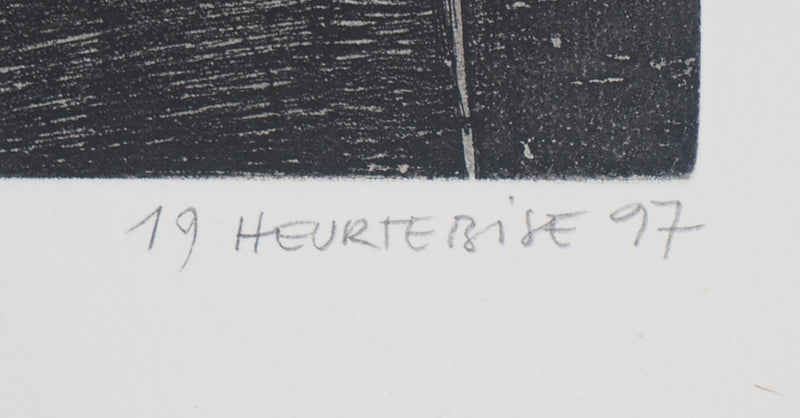 19 HEURTEBiSE 97